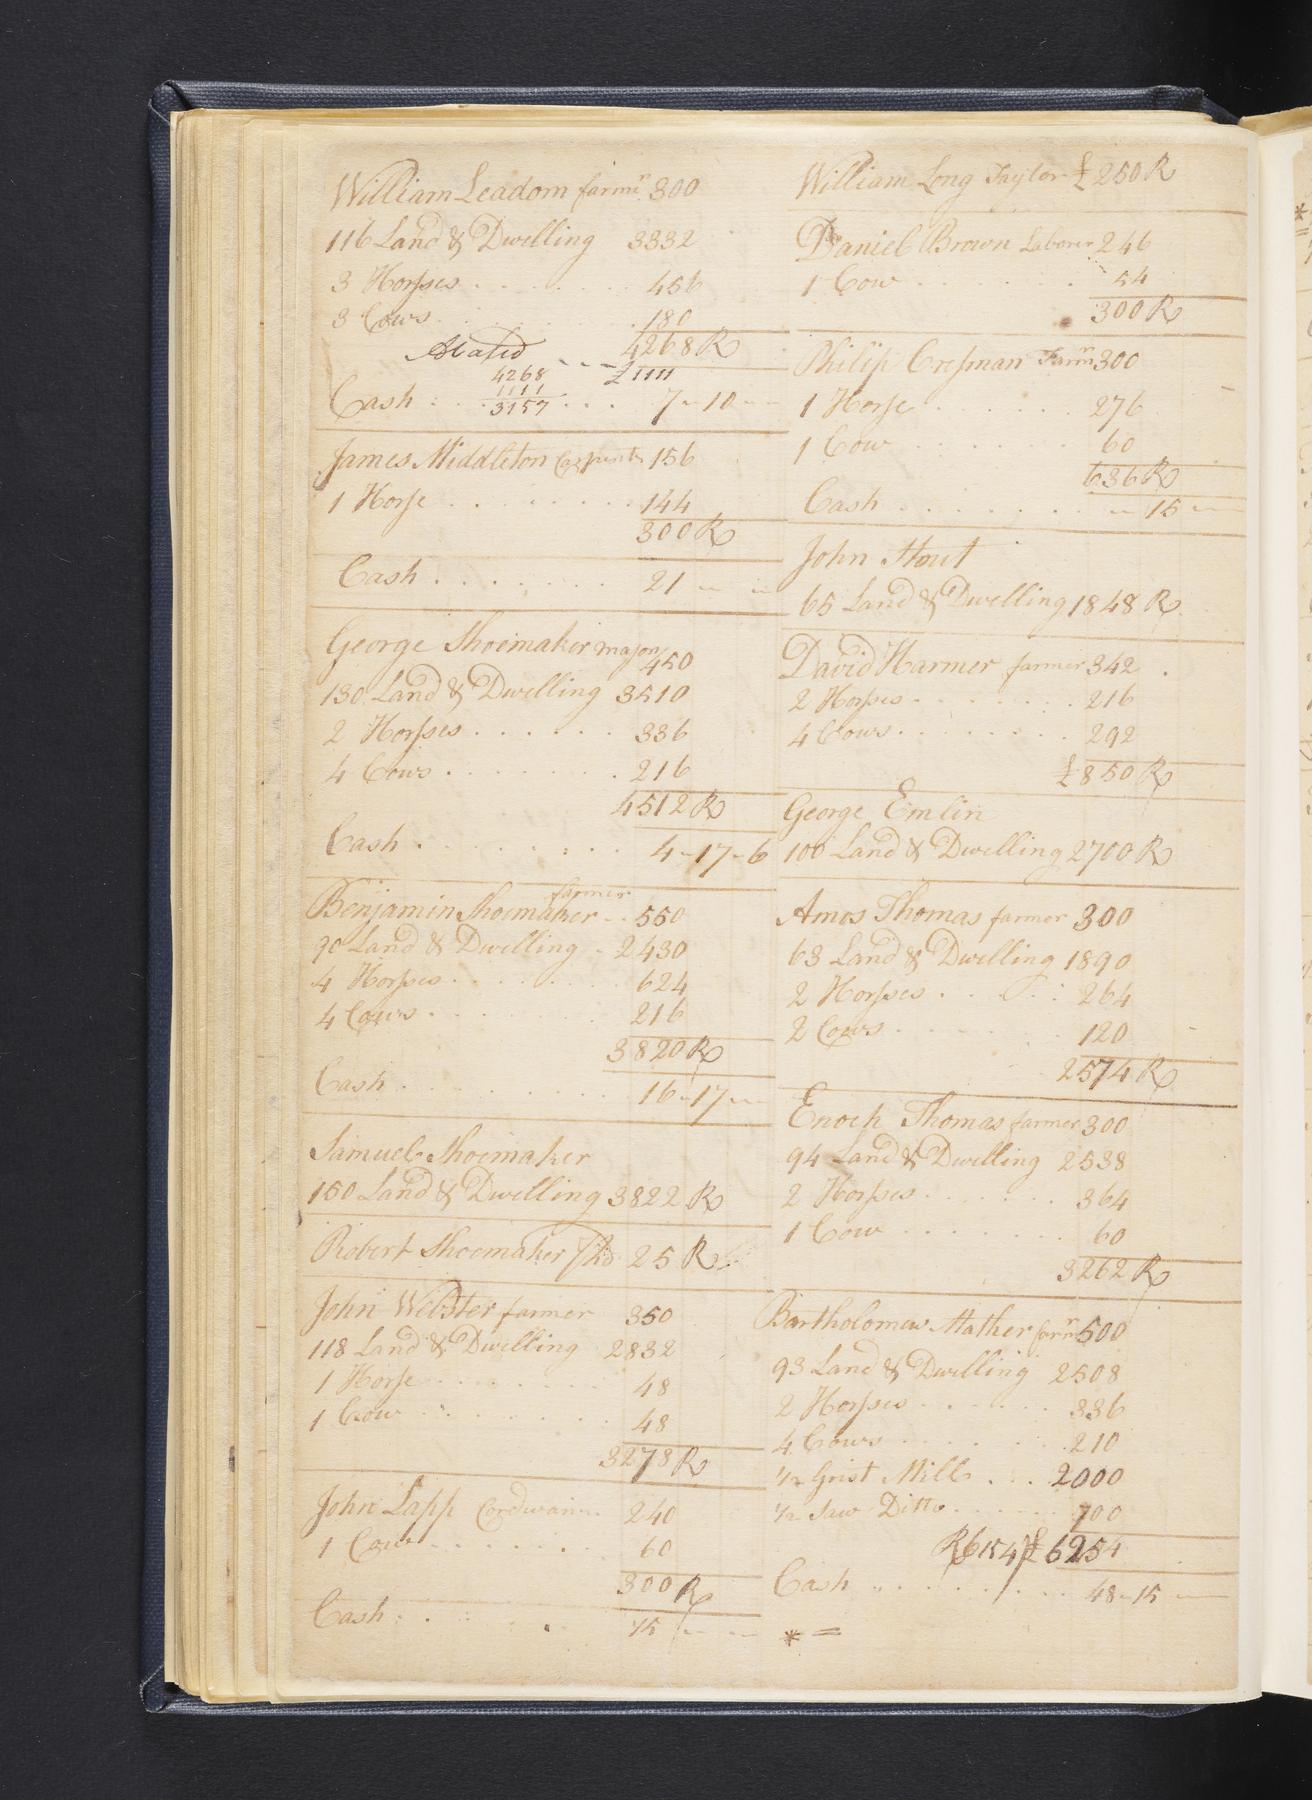 William Leadom farmr 300
116 Land & Dwelling 3332
3 Horses 456
3 Cows 180
4268 R
Abated £1111
4268
1111
3157
Cash 7 - 10 -
James Middleton Carpentr 156
1 Horse 144
300 R
Cash 21 - -
George Shoemaker major
450
130 Land & Dwelling 3510
2 Horses 336
4 Cows 216
4512 R
Cash 4 - 17 - 6
farmer
Benjamin Shoemaker 550
90 Land & Dwelling 2430
4 Horses 624
4 Cows 216
3820 R
Cash 16 - 17 -
Samuel Shoemaker
150 Land & Dwelling 3822 R
Robert Shoemaker 25 R
John Webster farmer 350
118 Land & Dwelling 2832
1 Horse 48
1 Cow 48
3278 R
John Lapp Cordwain 240
1 Cow 60
300 R
Cash 75 - -
William Long Taylor £250 R
Daniel Brown Laborer 246
1 Cow 54
300 R
Philip Cresman Farmr 300
1 Horse 276
1 Cow 60
636 R
Cash - 15 -
John Stout
65 Land & Dwelling 1848 R
David Harmer farmer 342
2 Horses 216
4 Cows 292
£850 R
George Emlin
100 Land & Dwelling 2700 R
Amos Thomas farmer 300
63 Land & Dwelling 1890
2 Horses 264
2 Cows 120
2574 R
Enoch Thomas farmer 300
94 Land & Dwelling 2538
2 Horses 364
1 Cow 60
3262 R
Bartholomew Mather farmr 500
93 Land & Dwelling 2508
2 Horses 336
4 Cows 210
1/2 Grist Mill 2000
1/2 Saw Ditto 700
R 6154 £6254
Cash 48 - 15 -
* =